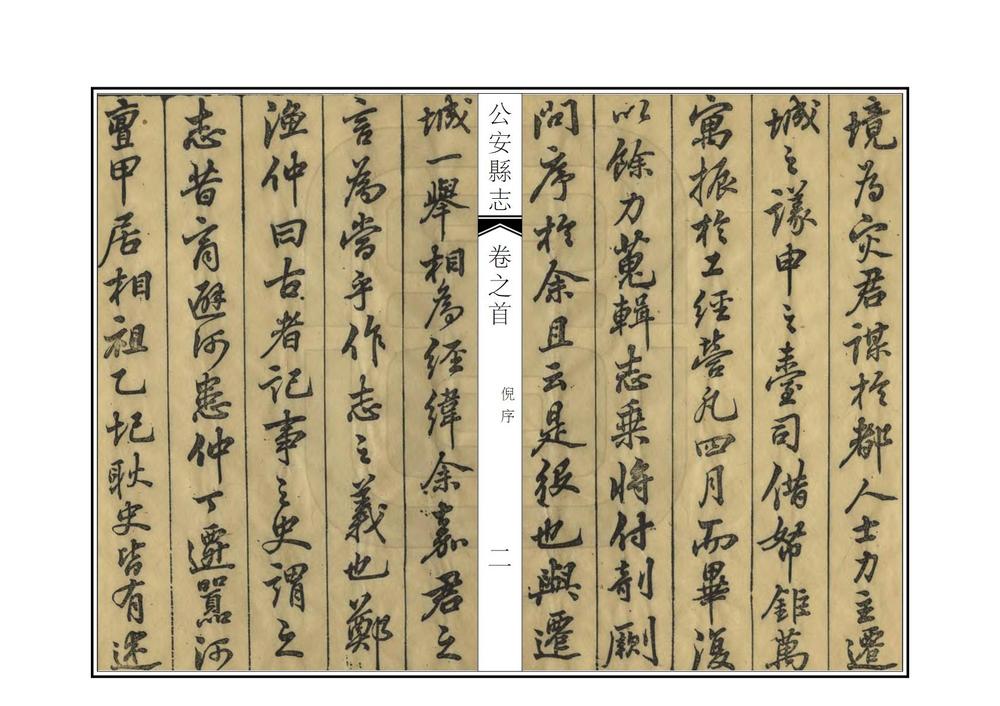 境為灾君謀於都人士力主遷
城之議申之臺司借帑鉅萬
寓振於工經營凡四月而畢復
以餘力蒐輯志乗將付剞劂
問序於余且云是役也與遷
公安縣志
卷之首
倪序
二
城一舉相為經緯余嘉君之
言為當乎作志之義也鄭
漁仲曰古者記事之史謂之
志昔商避河患仲丁遷嚣河
亶甲居相祖乙圮耿史皆有述